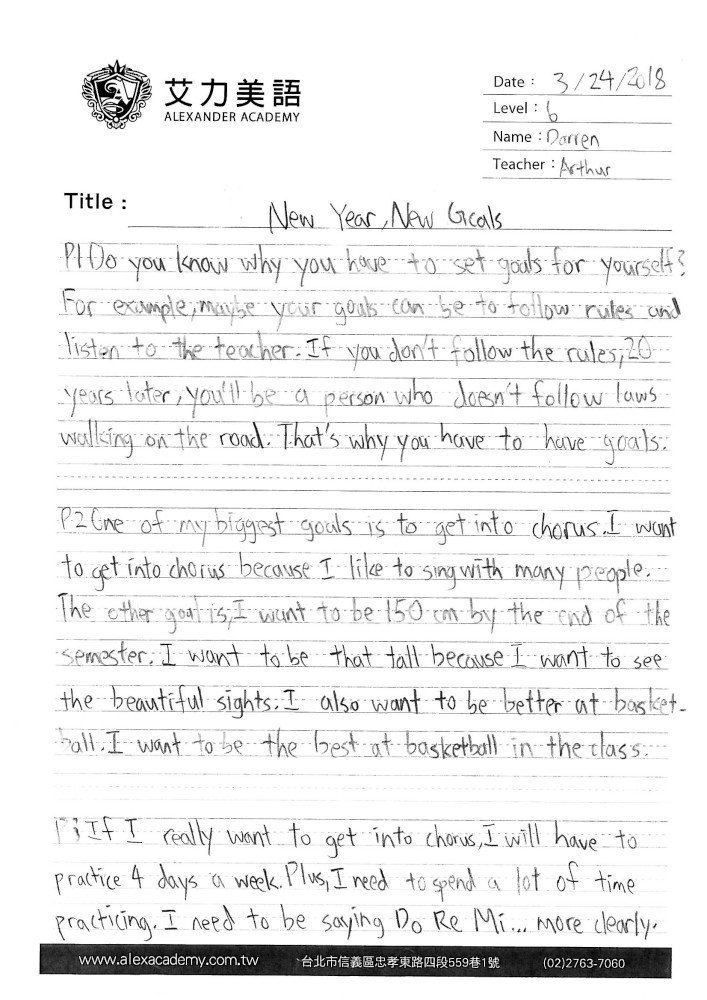 艾力美語
ALEXANDER ACADEMY
Date : 3/24/2018
Level : 6
Name : Darren
Teacher : Arthur
Title : New Year, New Goals
P1 Do you know why you have to set goals for yourself?
For example, maybe your goals can be to follow rules and
listen to the teacher. If you don't follow the rules, 20
years later, you'll be a person who doesn't follow laws
walking on the road. That's why you have to have goals.
P2 One of my biggest goals is to get into chorus. I want
to get into chorus because I like to sing with many people.
The other goal is, I want to be 150 cm by the end of the
semester. I want to be that tall because I want to see
the beautiful sights. I also want to be better at basket-
ball. I want to be the best at basketball in the class.
P3 If I really want to get into chorus, I will have to
practice 4 days a week. Plus, I need to spend a lot of time
practicing. I need to be saying Do Re Mi... more clearly.
www.alexacademy.com.tw 台北市信義區忠孝東路四段559巷1號 (02)2763-7060